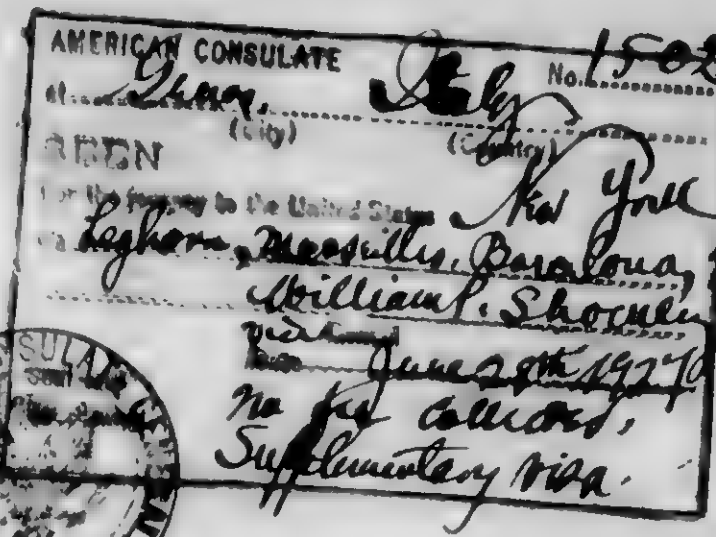 AMERICAN CONSULATE
at Genoa, Italy No. 1502
(City) (Country)
SEEN
For the journey to the United States New York
via Leghorn, Marseilles, Barcelona,
William P.
June 29th 1927
no fee collected,
Supplementary visa.